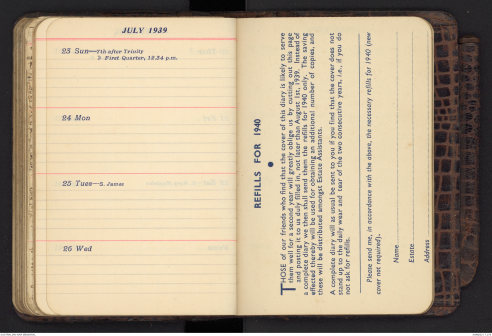 JULY 1939
23 Sun—7th after Trinity
☽ First Quarter, 12.34 p.m.
24 Mon
25 Tues—S. James
26 Wed
REFILLS FOR 1940
THOSE of our friends who find that the cover of this diary is likely to serve
them well for a second year will greatly oblige us by cutting out this page
and posting it to us duly filled in, not later than August 1st, 1939. Instead of
a complete diary we then shall send them the refills for 1940 only. The saving
effected thereby will be used for obtaining an additional number of copies, and
these will be distributed amongst Estate Assistants.
A complete diary will as usual be sent to you if you find that the cover does not
stand up to the daily wear and tear of the two consecutive years, i.e., if you do
not ask for refills.
Please send me, in accordance with the above, the necessary refills for 1940 (new
cover not required).
Name
Estate
Address